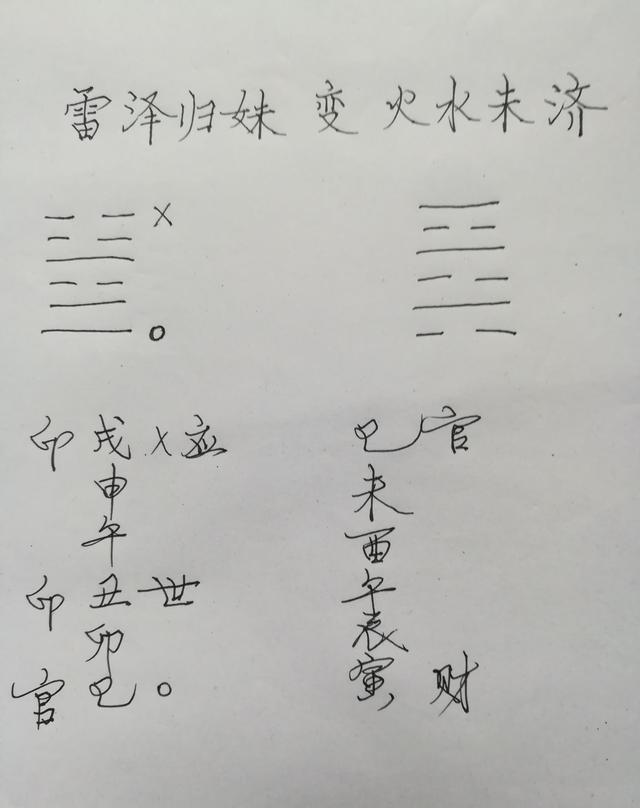 雷泽归妹 变 火水未济
X
o
印 戌 X 应 巳 官
申 未
午 酉
印 丑 世 午
卯 辰
官 巳 o 寅 财